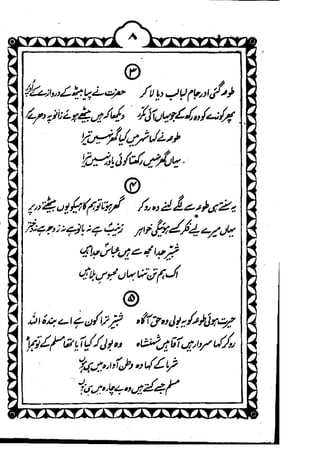 ۸
۳
طوعہ گئی اور جام لبالب دیا لا کر حضرت نے پیا بیٹھ گئے دروازے کے
پھر کونے کو وہ رکھ کے جو باہر آئی دیکھا کہ ہیں بیٹھے ہوئے زانو پہ دھرے
طوعہ نے کہا شہر میں کیا گھر نہیں تیرا
یہاں گھر نہیں رکھتا کوئی یاور نہیں تیرا
۴
یہ سنتے ہی طوعہ سے لگے کہنے وہ رو کر گھر ہوتا تو ہم کاہے کو یوں بیٹھتے در پر
یہاں میرے لیے فکر سے ہوگی خواہر زینب ہے نہ بانو ہے نہ زوجہ ہے نہ دختر
شبیر جدا مجھ سے ہیں عباس جدا ہیں
اک ہم تن تنہا یہاں محبوس بلا ہیں
۵
حیرت ہوئی طوعہ کو یہ بولی وہ حق آگاہ شبیر ترا کون ہے اے بندۂ اللہ
رو کر کہا سردار ہیں آقا ہیں شہنشاہ وہ بولی کہ کیا آیا تھا مسلم کے تو ہمراہ
شرما کے کہا وہ وطن آوارہ میں ہی ہوں
مسلم جسے کہتے ہیں وہ بے چارہ میں ہی ہوں